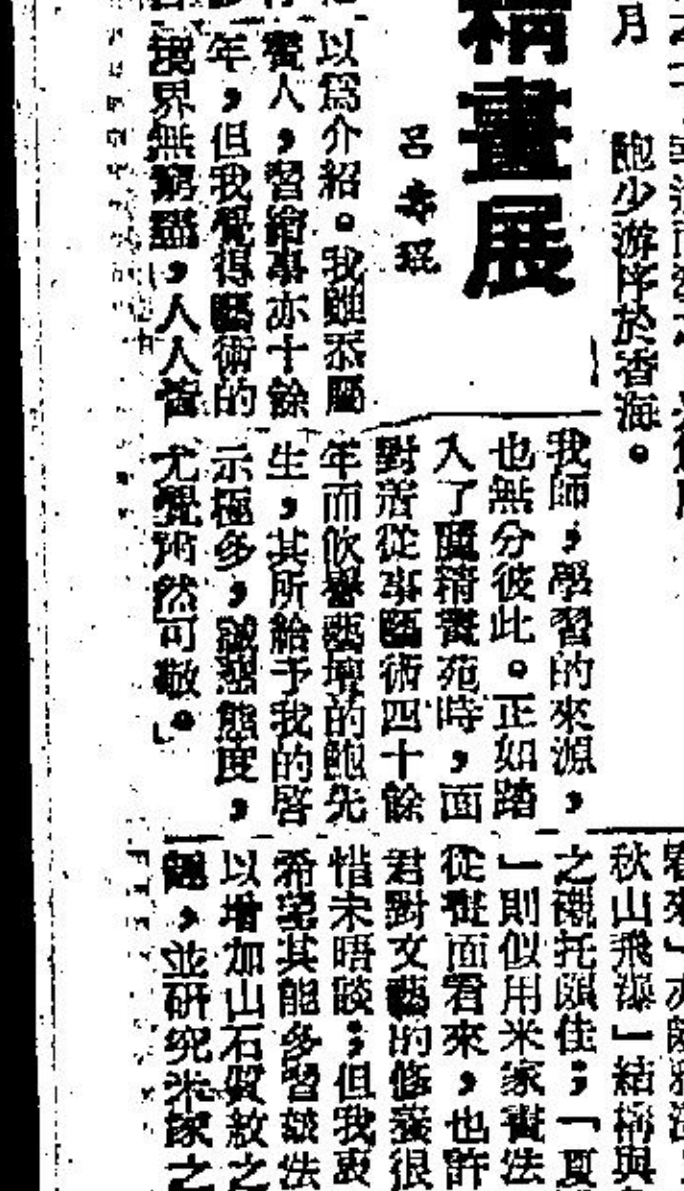 月
鮑少游序於香海。
畫展
呂壽琨
以爲介紹。我雖忝屬
畫人，習繪事亦十餘
年，但我覺得藝術的
境界無窮盡，人人皆
我師，學習的來源，
也無分彼此。正如踏
入了麗精畫苑時，面
對着從事藝術四十餘
年而飲譽藝壇的鮑先
生，其所給予我的啓
示極多，誠懇態度，
尤覺藹然可敬。」
秋山飛瀑」結構與
之襯托頗佳；「夏
」則似用米家畫法
從畫面看來，也許
君對文藝的修養很
惜未晤談；但我衷
希望其能多習皴法
以增加山石質之
，並研究米家之